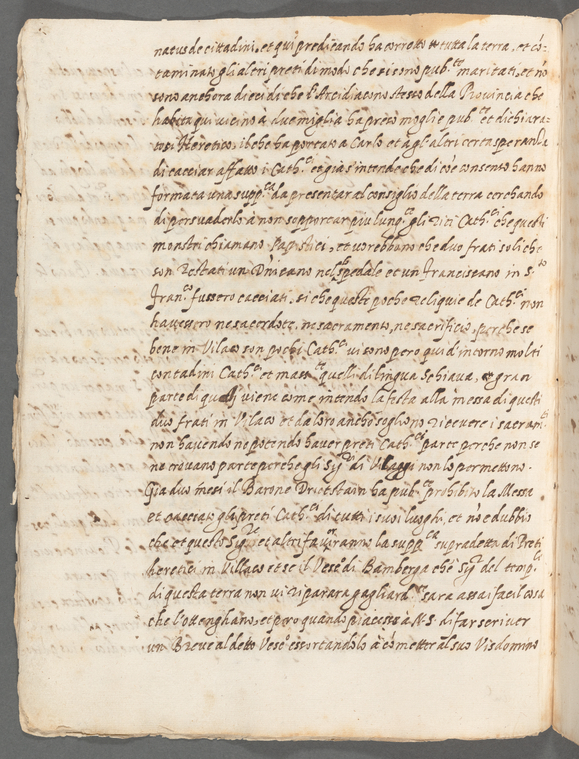 natus de cittadini, et qui predicando ha corrotto tutta la terra, et cõ-
taminato gli altri preti di modo che si sono pub.te maritati, et nõ
sono anchora dieci di che l'Arcidiacono stesso della Provincia che
habita qui vicino a due miglia ha preso moglie pub.te et dichiara-
tosi Heretico, il che ha portato a Carlo et agl'altri certa speranza
di cacciar affatto i Cath.ci et già s'intende che di cõe consenso hanno
formata una supp.ca da presentar al consiglio della terra cerchando
di persuaderlo à non sopportar piu lung.te gli riti Cath.ci che questi
monstri chiamano Papistici, et vorrebbono che duo frati soli che
son restati un Dñicano nel hospedale et un Franciscano in S.to
Fran.co fussero cacciati, si che queste poche reliquie de Cath.ci non
havessero ne sacerdote, ne sacramento, ne sacrificio, perche se
bene in Vilaco son pochi Cath.ci vi sono però qui d'intorno molti
contadini Cath.ci et mass.te quelli di lingua Schiava, et gran
parte di quali viene come intendo la festa alla messa di questi
duo frati in Vilaco et da loro ancho sogliono ricevere i sacram.ti
non havendo ne potendo haver preti Cath.ci parte perche non se
ne trovano parte perche gli Sig.ri di Vilaggi non lo permettono.
Gia duo mesi il Barone Dietristain ha pub.te prohibito la Messa
et cacciato gli preti Cath.ci di tutti i suoi luoghi, et nõ e dubbio
che et questo Sig.re et altri favoriranno la supp.ca supradetta di Preti
heretici in Villaco et se il Vesc.o di Bamberga che è Sig.re del temp.le
di questa terra non vi ripararà gagliard.te sara assai facil cosa
che l'ottenghano, et però quando piacesse a N.S. di far scriver
un Breve al detto Vesc.o essortandolo a cõmetter al suo Visdomino